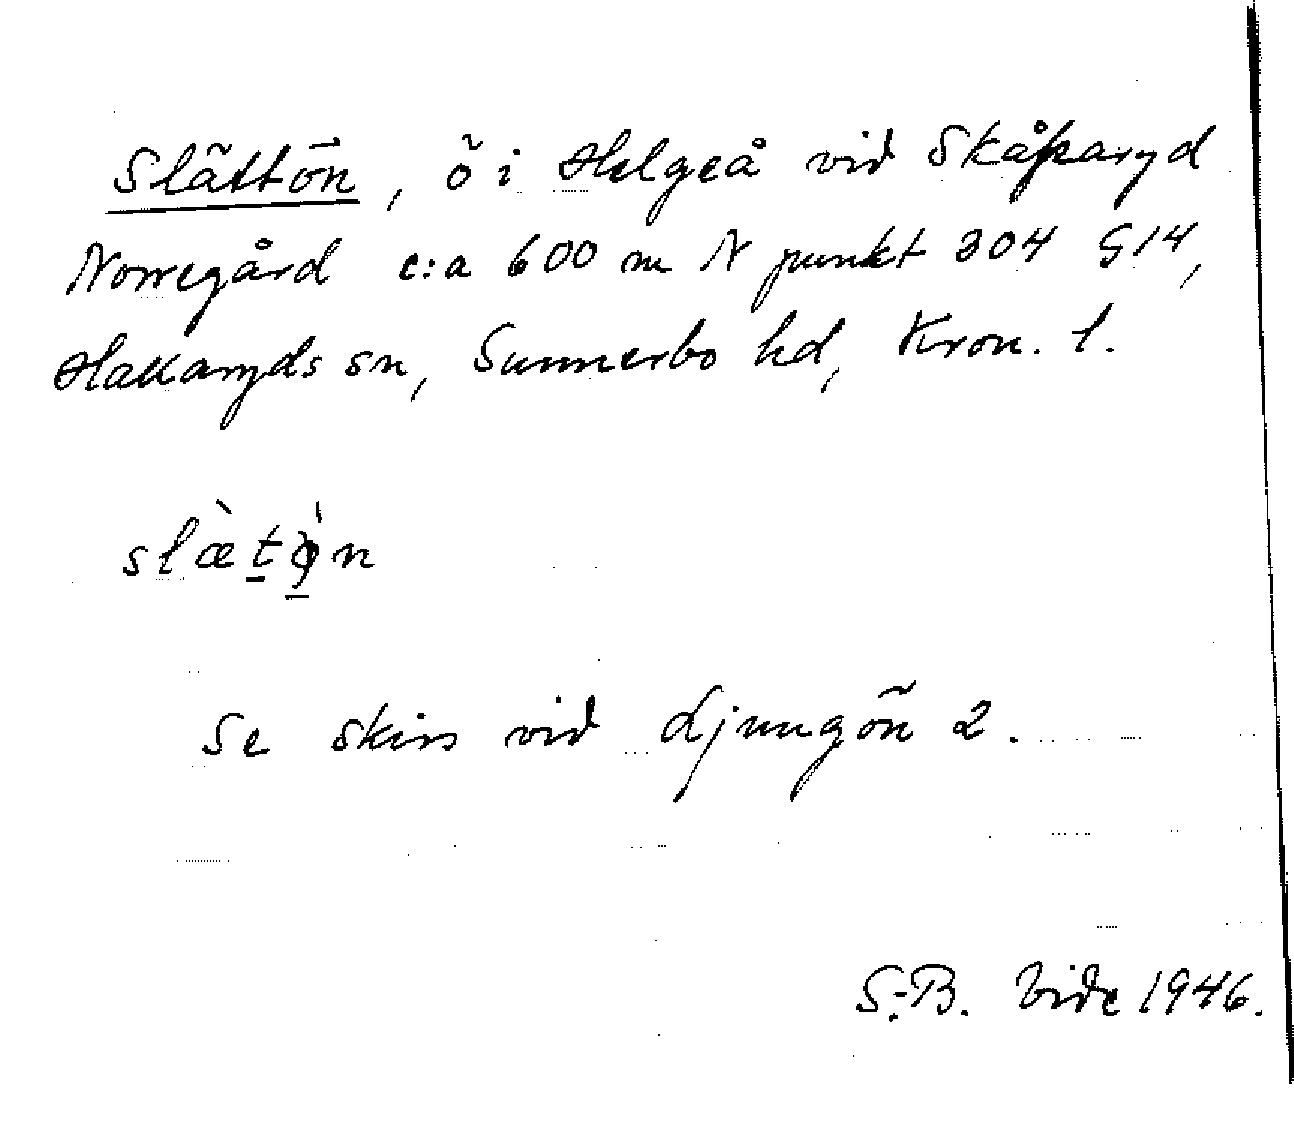 Slättön, ö i Helgeå vid Skåparyd
Norregård c:a 600 m N punkt 304 G14,
Hakaryds sn, Sunnerbo hd, Kron. l.
Se skiss vid Ljungön 2.
S.-B. Vide 1946.